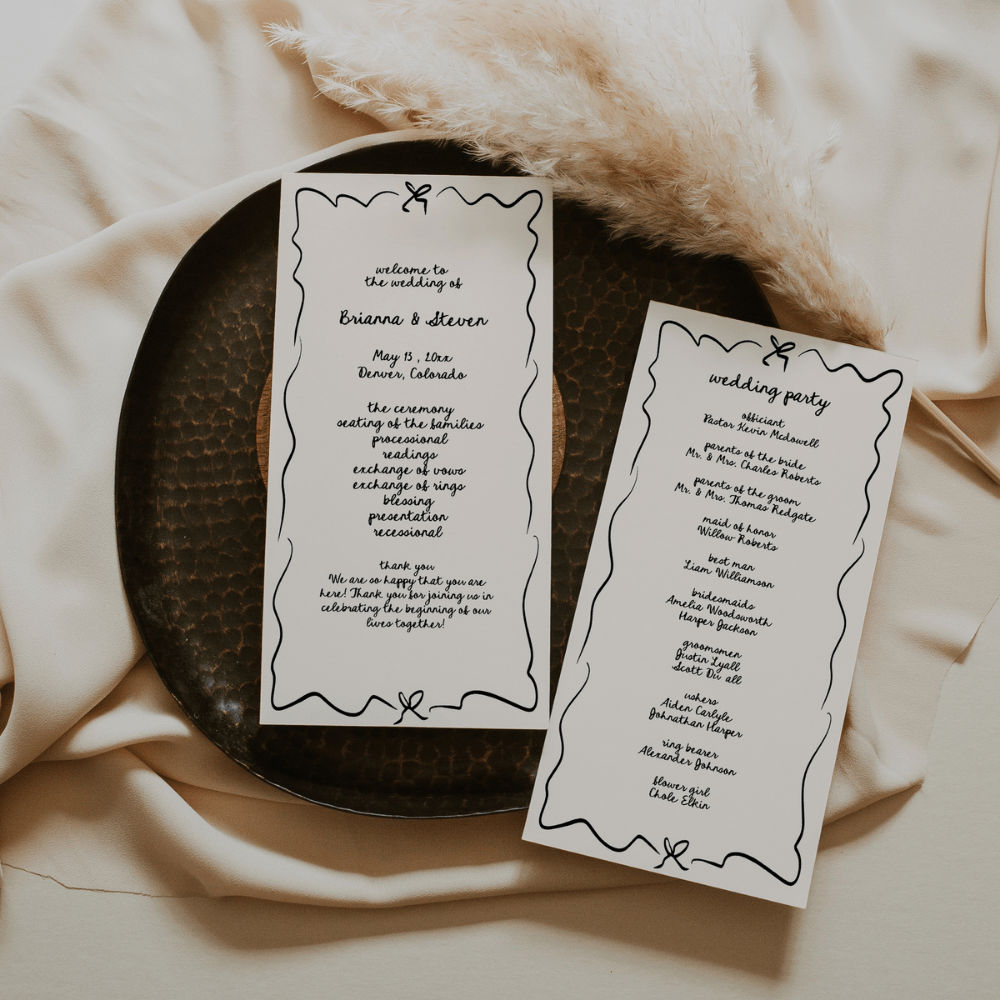 welcome to
the wedding of
Brianna & Steven
May 13, 20xx
Denver, Colorado
the ceremony
seating of the families
processional
readings
exchange of vows
exchange of rings
blessing
presentation
recessional
thank you
We are so happy that you are
here! Thank you for joining us in
celebrating the beginning of our
lives together!
wedding party
officiant
Pastor Kevin Mcdowell
parents of the bride
Mr. & Mrs. Charles Roberts
parents of the groom
Mr. & Mrs. Thomas Redgate
maid of honor
Willow Roberts
best man
Liam Williamson
bridesmaids
Amelia Woodsworth
Harper Jackson
groomsmen
Justin Lyall
Scott
ushers
Aiden Carlyle
Johnathan Harper
ring bearer
Alexander Johnson
flower girl
Chole Elkin